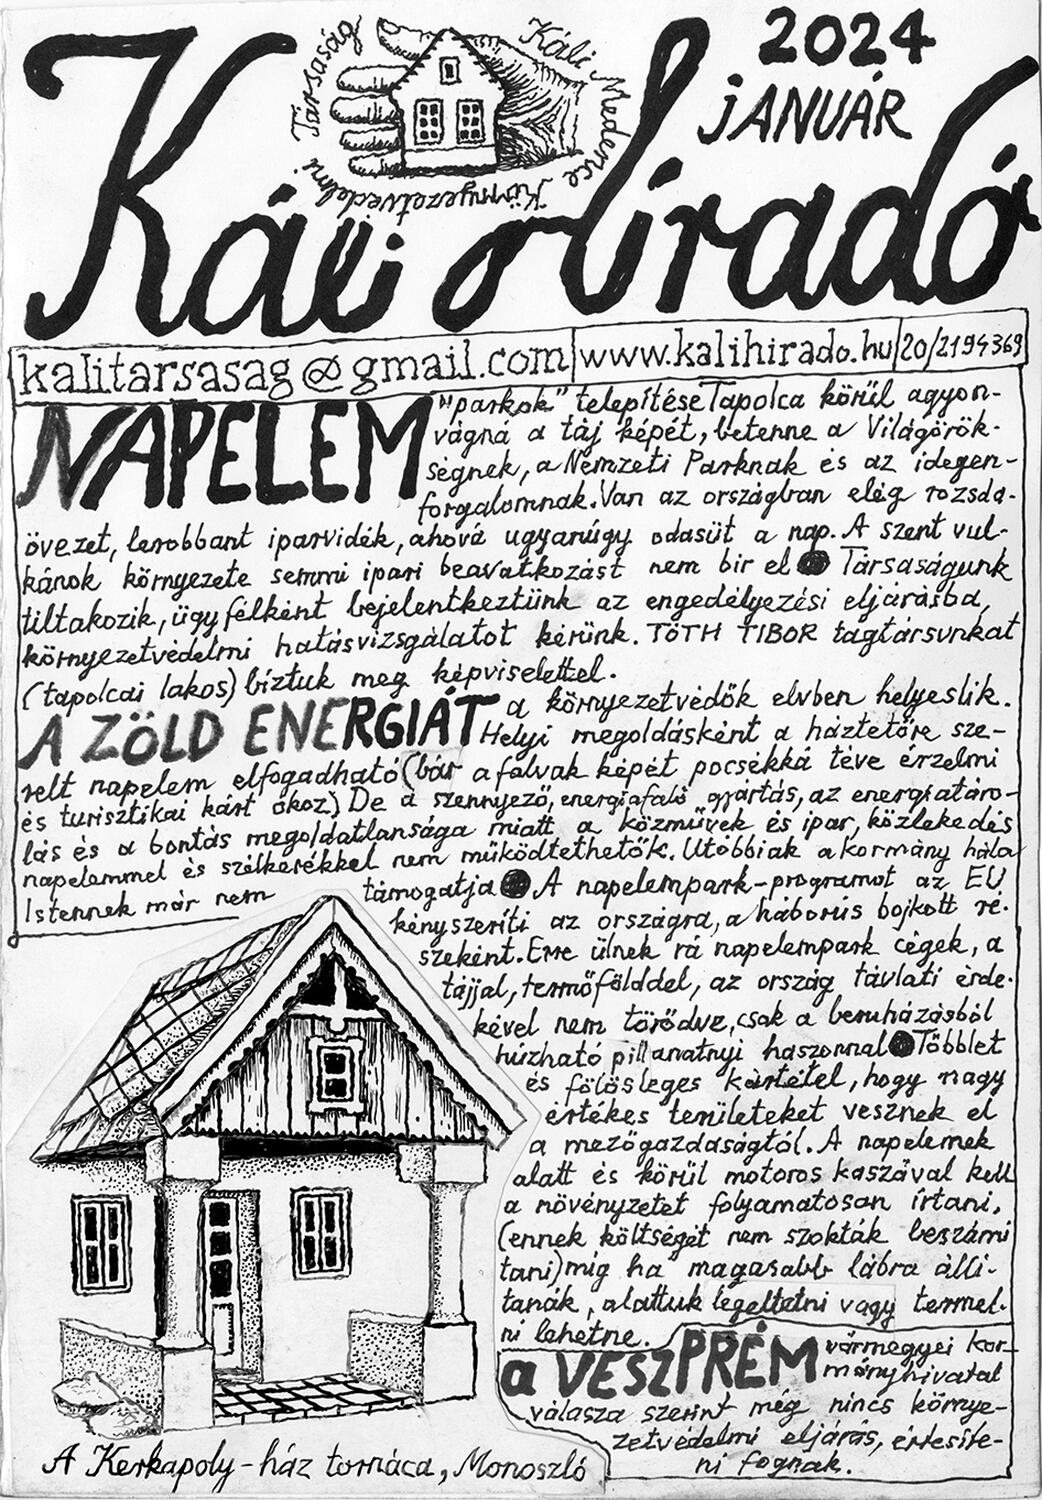 2024
jANUÁR
Káli Medence Környezetvédelmi Társaság
Káli Híradó
kalitarsasag@gmail.com|www.kalihirado.hu|20/2194369
NAPELEM "parkok" telepítése Tapolca körül agyon-
vágná a táj képét, betenne a Világörök-
ségnek, a Nemzeti Parknak és az idegen-
forgalomnak. Van az országban elég rozsda-
övezet, lerobbant iparvidék, ahová ugyanúgy odasüt a nap. A szent vul-
kánok környezete semmi ipari beavatkozást nem bir el ● Társaságunk
tiltakozik, ügyfélként bejelentkeztünk az engedélyezési eljárásba,
környezetvédelmi hatásvizsgálatot kérünk. TÓTH TIBOR tagtársunkat
(tapolcai lakos) bíztuk meg képviselettel.
A ZÖLD ENERGIÁT a környezetvédők elvben helyeslik.
Helyi megoldásként a háztetőre sze-
relt napelem elfogadható (bár a falvak képét pocsékká téve érzelmi
és turisztikai kárt okoz) De a szennyező, energiafaló gyártás, az energiatáro-
lás és a bontás megoldatlansága miatt a közművek és ipar, közlekedés
napelemmel és szélkerékkel nem működtethetők. Utóbbiak a kormány hála
Istennek már nem támogatja ● A napelempark-programot az EU
kényszeríti az országra, a háborús bojkott ré-
szeként. Erre ülnek rá napelempark cégek, a
tájjal, termőfölddel, az ország távlati érde-
kével nem törődve, csak a beruházásból
húzható pillanatnyi haszonnal ● Többlet
és fölösleges kártétel, hogy nagy
értékes területeket vesznek el
a mezőgazdaságtól. A napelemek
alatt és körül motoros kaszával kell
a növényzetet folyamatosan írtani,
(ennek költségét nem szokták beszámí
tani) míg ha magasabb lábra állí-
tanák, alattuk legeltetni vagy termel-
ni lehetne.
a VESZPRÉM vármegyei kor-
mányhivatal
válasza szerint még nincs környe-
zetvédelmi eljárás, értesíte-
ni fognak.
A Kerkapoly-ház tornáca, Monoszló